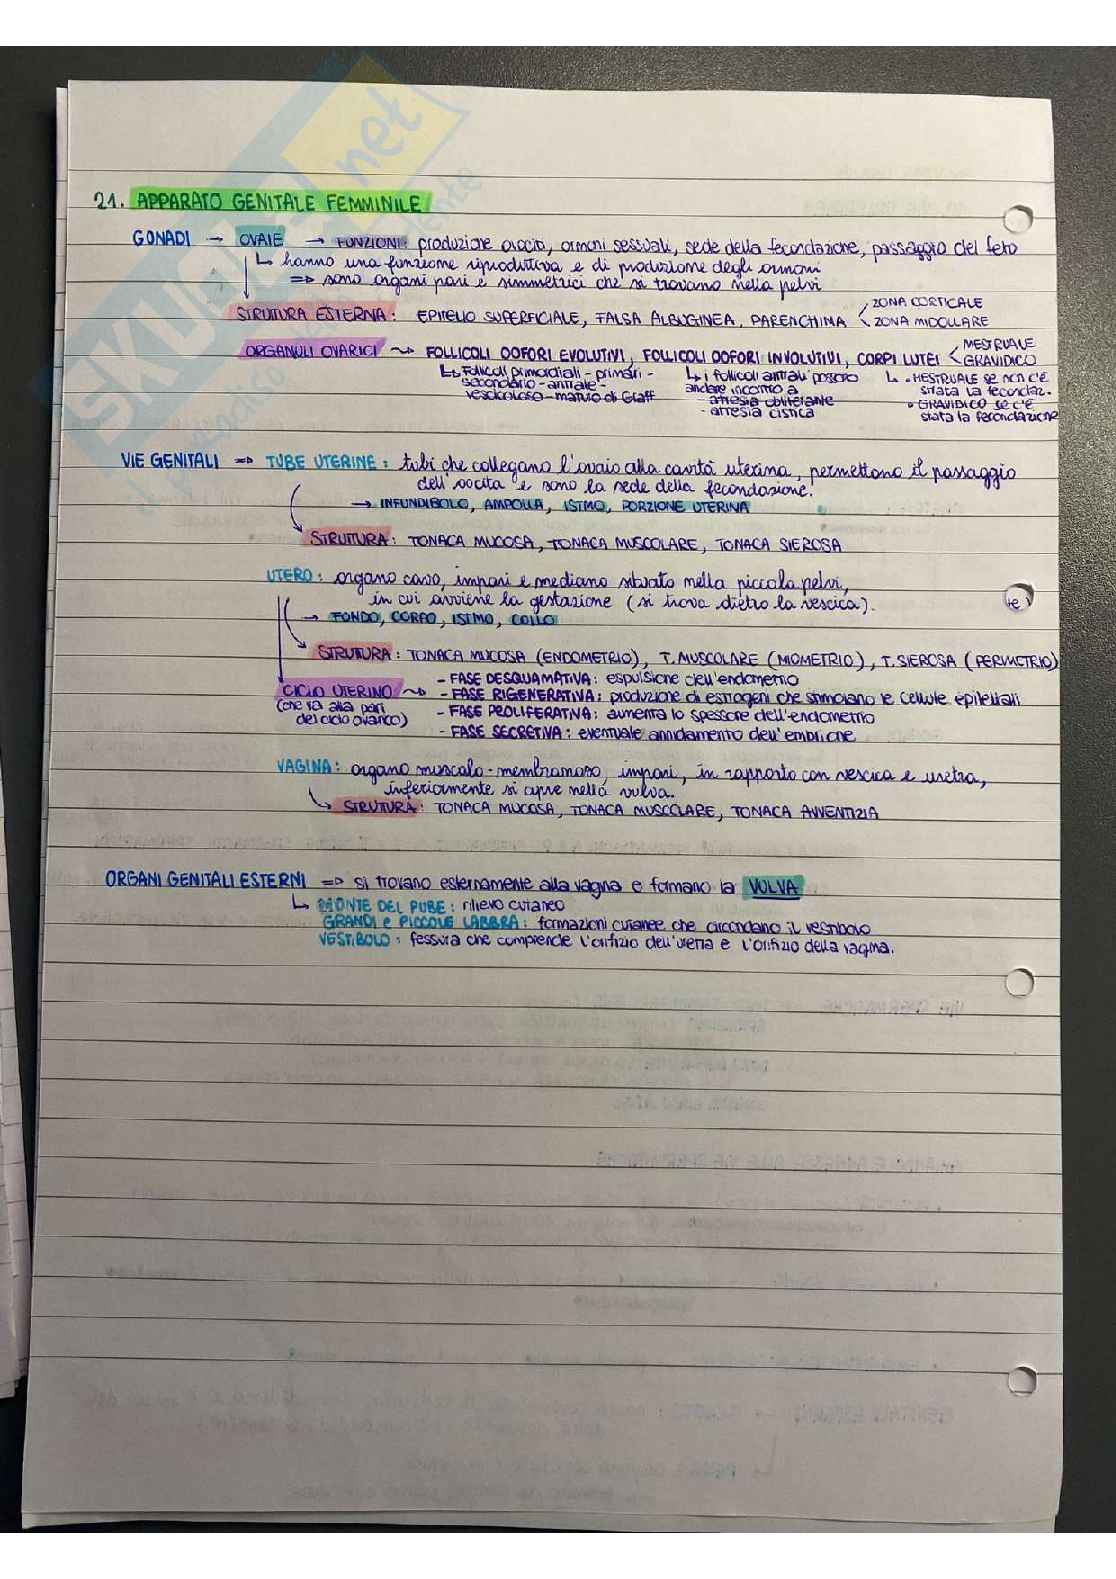 21. APPARATO GENITALE FEMMINILE
GONADI → OVAIE → FUNZIONI: produzione ovocita, ormoni sessuali, sede della fecondazione, passaggio del feto
↳ hanno una funzione riproduttiva e di produzione degli ormoni
⇒ sono organi pari e simmetrici che si trovano nella pelvi
STRUTTURA ESTERNA: EPITELIO SUPERFICIALE, FALSA ALBUGINEA, PARENCHIMA < ZONA CORTICALE
ZONA MIDOLLARE
ORGANULI OVARICI ⤳ FOLLICOLI OOFORI EVOLUTIVI, FOLLICOLI OOFORI INVOLUTIVI, CORPI LUTEI < MESTRUALE
GRAVIDICO
↳ Follicoli primordiali - primari -
secondario - antrale -
vescicoloso - maturo di Graff
↳ i follicoli antrali possono
andare incontro a
- atresia obliterante
- atresia cistica
↳ • MESTRUALE se non c'è
stata la fecondaz.
• GRAVIDICO se c'è
stata la fecondazione
VIE GENITALI ⇒ TUBE UTERINE: tubi che collegano l'ovaio alla cavità uterina, permettono il passaggio
dell'oocita e sono la sede della fecondazione.
→ INFUNDIBOLO, AMPOLLA, ISTMO, PORZIONE UTERINA
STRUTTURA: TONACA MUCOSA, TONACA MUSCOLARE, TONACA SIEROSA
UTERO: organo cavo, impari e mediano situato nella piccola pelvi,
in cui avviene la gestazione (si trova dietro la vescica).
→ FONDO, CORPO, ISTMO, COLLO
STRUTURA: TONACA MUCOSA (ENDOMETRIO), T. MUSCOLARE (MIOMETRIO), T. SIEROSA (PERIMETRIO)
CICLO UTERINO ⤳ - FASE DESQUAMATIVA: espulsione dell'endometrio
(che va alla pari
del ciclo ovarico)
- FASE RIGENERATIVA: produzione di estrogeni che stimolano le cellule epiteliali
- FASE PROLIFERATIVA: aumenta lo spessore dell'endometrio
- FASE SECRETIVA: eventuale annidamento dell'embrione
VAGINA: organo muscolo-membranoso, impari, in rapporto con vescica e uretra,
inferiormente si apre nella vulva.
STRUTURA: TONACA MUCOSA, TONACA MUSCOLARE, TONACA AVVENTIZIA
ORGANI GENITALI ESTERNI ⇒ si trovano esternamente alla vagina e formano la VULVA
↳ MONTE DEL PUBE: rilievo cutaneo
GRANDI e PICCOLE LABBRA: formazioni cutanee che circondano il vestibolo
VESTIBOLO: fessura che comprende l'orifizio dell'uretra e l'orifizio della vagina.